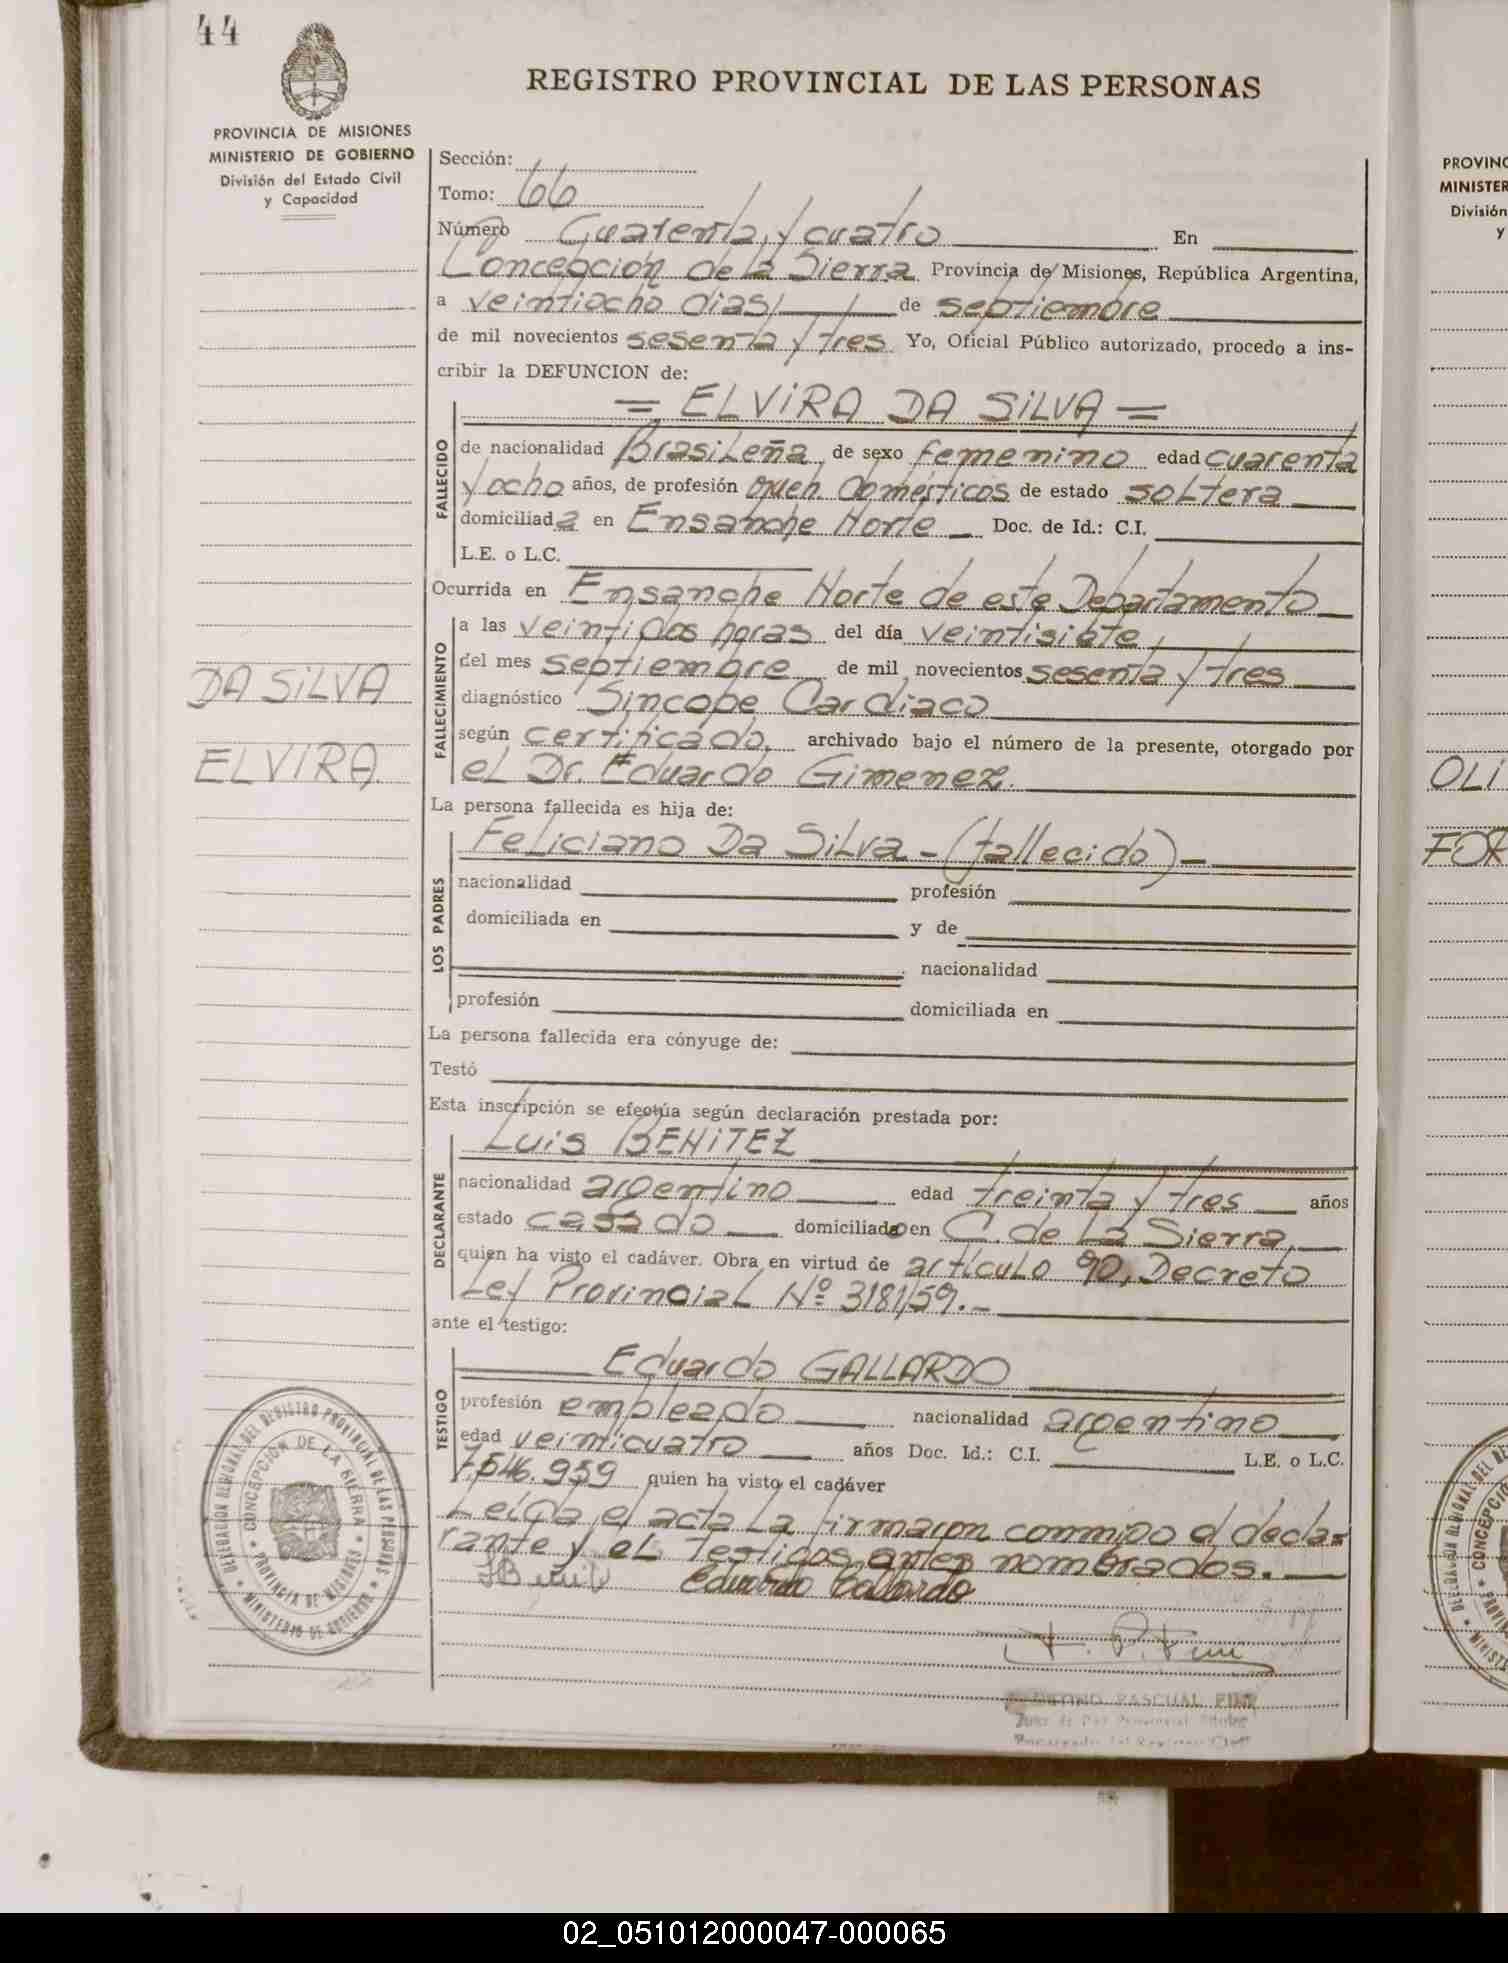 44
REGISTRO PROVINCIAL DE LAS PERSONAS
PROVINCIA DE MISIONES
MINISTERIO DE GOBIERNO
División del Estado Civil
y Capacidad
Sección:
Tomo: 66
Número Cuarenta y cuatro En
Concepción de la Sierra Provincia de Misiones, República Argentina,
a veintiocho dias de septiembre
de mil novecientos sesenta y tres Yo, Oficial Público autorizado, procedo a ins-
cribir la DEFUNCION de:
= ELViRA DA SiLVA =
FALLECIDO
de nacionalidad Brasileña de sexo femenino edad cuarenta
y ocho años, de profesión queh. Domésticos de estado soltera
domiciliada en Ensanche Norte Doc. de Id.: C.I.
L.E. o L.C.
Ocurrida en Ensanche Norte de este Departamento
FALLECIMIENTO
a las veintidos horas del día veintisiete
del mes septiembre de mil novecientos sesenta y tres
diagnóstico Sincope Cardiaco
según certificado, archivado bajo el número de la presente, otorgado por
el Dr. Eduardo Gimenez.
DA SiLVA
ELVIRA
La persona fallecida es hija de:
LOS PADRES
Feliciano Da Silva - (fallecido) -
nacionalidad profesión
domiciliada en y de
nacionalidad
profesión domiciliada en
La persona fallecida era cónyuge de:
Testó
Esta inscripción se efectúa según declaración prestada por:
DECLARANTE
Luis BENiTEZ
nacionalidad argentino edad treinta y tres años
estado casado domiciliado en C. de La Sierra,
quien ha visto el cadáver. Obra en virtud de artículo 90, Decreto
Ley Provincial Nº 3181/59.-
ante el testigo:
TESTIGO
Eduardo GALLARDO
profesión empleado nacionalidad argentino
edad veinticuatro años Doc. Id.: C.I. L.E. o L.C.
7.546.959 quien ha visto el cadáver
Leida el acta la firmaron conmigo el decla-
rante y el testigos antes nombrados.
Eduardo Gallardo
PASCUAL
DELEGACION REGIONAL DEL REGISTRO PROVINCIAL DE LAS PERSONAS
CONCEPCION DE LA SIERRA
PROVINCIA DE MISIONES
MINISTERIO DE GOBIERNO
PROVINC
MINISTER
División
y
OLI
FOR
02_051012000047-000065